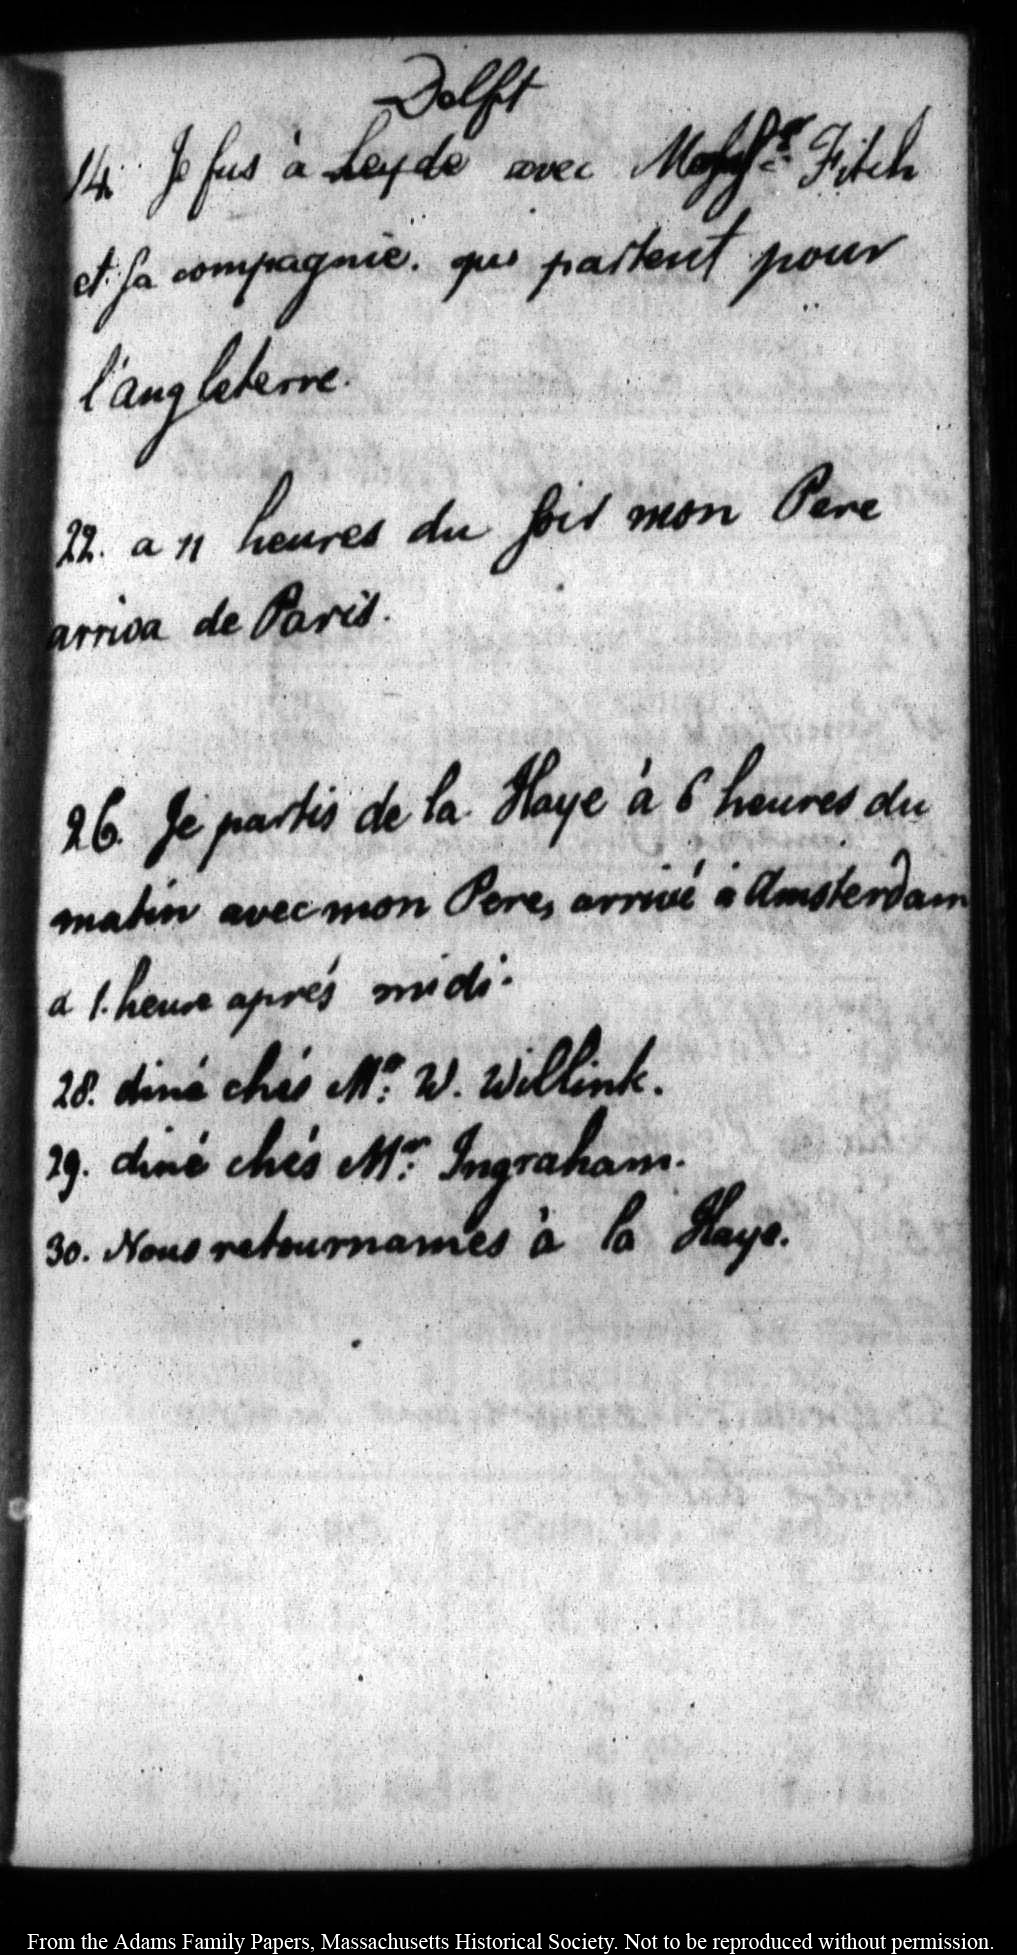 Delft
14. Je fus à Leyde avec Mr. Fitch
et sa compagnie. qui partent pour
l'Angleterre.
22. a 11 heures du soir mon Pere
arriva de Paris.
26. Je partis de la Haye à 6 heures du
matin avec mon Pere, arrivé à Amsterdam
a 1. heure aprés midi.
28. diné chés Mr. W. Willink.
29. diné chés Mr. Ingraham.
30. Nous retournames à la Haye.
From the Adams Family Papers, Massachusetts Historical Society. Not to be reproduced without permission.